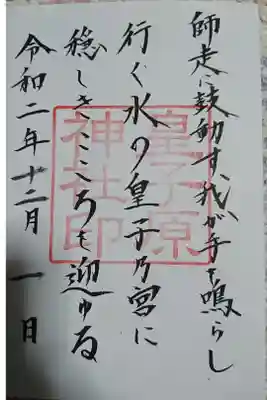 師走に鼓動す、我が手を鳴らし
行く水の皇子乃宮に
穏しきこころも迎ゆる
令和二年十二月一日
皇子原
神社印